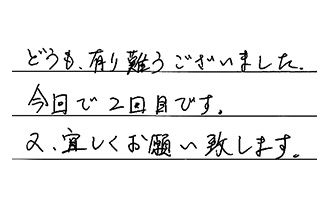 どうも、有り難うございました.
今回で2回目です。
又、宜しくお願い致します。